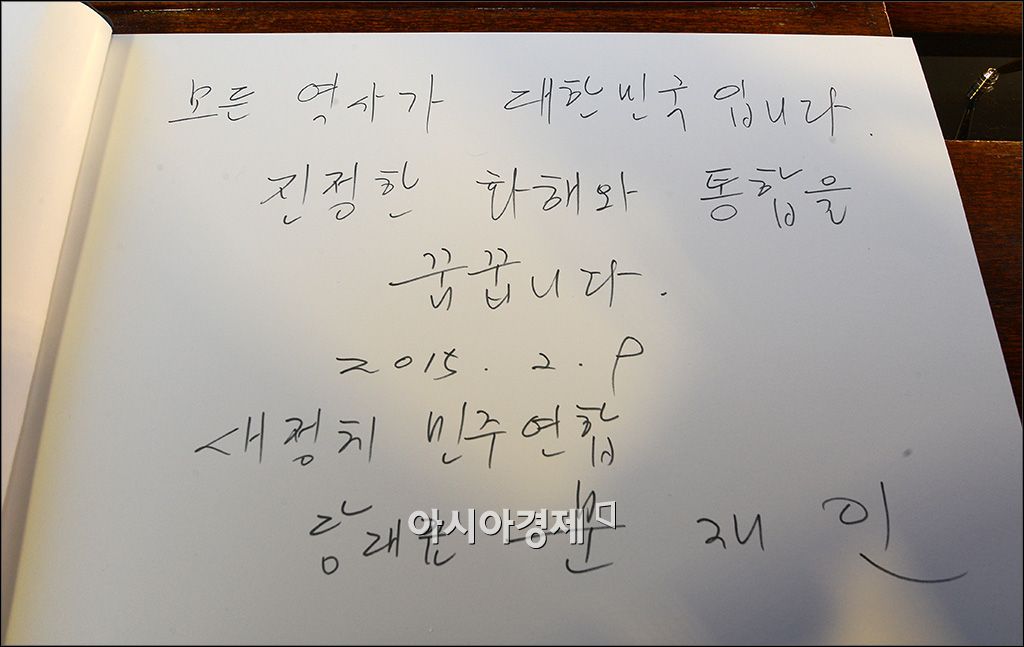 모든 역사가 대한민국입니다.
진정한 화해와 통합을
꿈꿉니다.
2015. 2. 9
새정치 민주연합
당대표 문 재 인
아시아경제